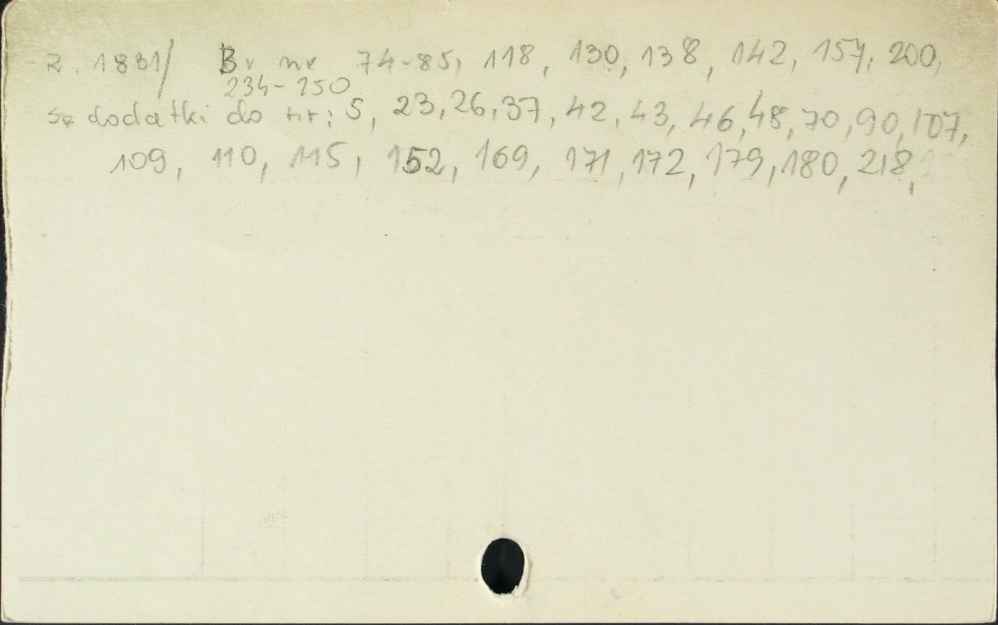 R. 1831/ Br nr 74-85, 118, 130, 138, 142, 157, 200,
234-250
są dodatki do nr: 5, 23, 26, 37, 42, 43, 46, 48, 70, 90, 107,
109, 110, 115, 152, 169, 171, 172, 179, 180, 218,